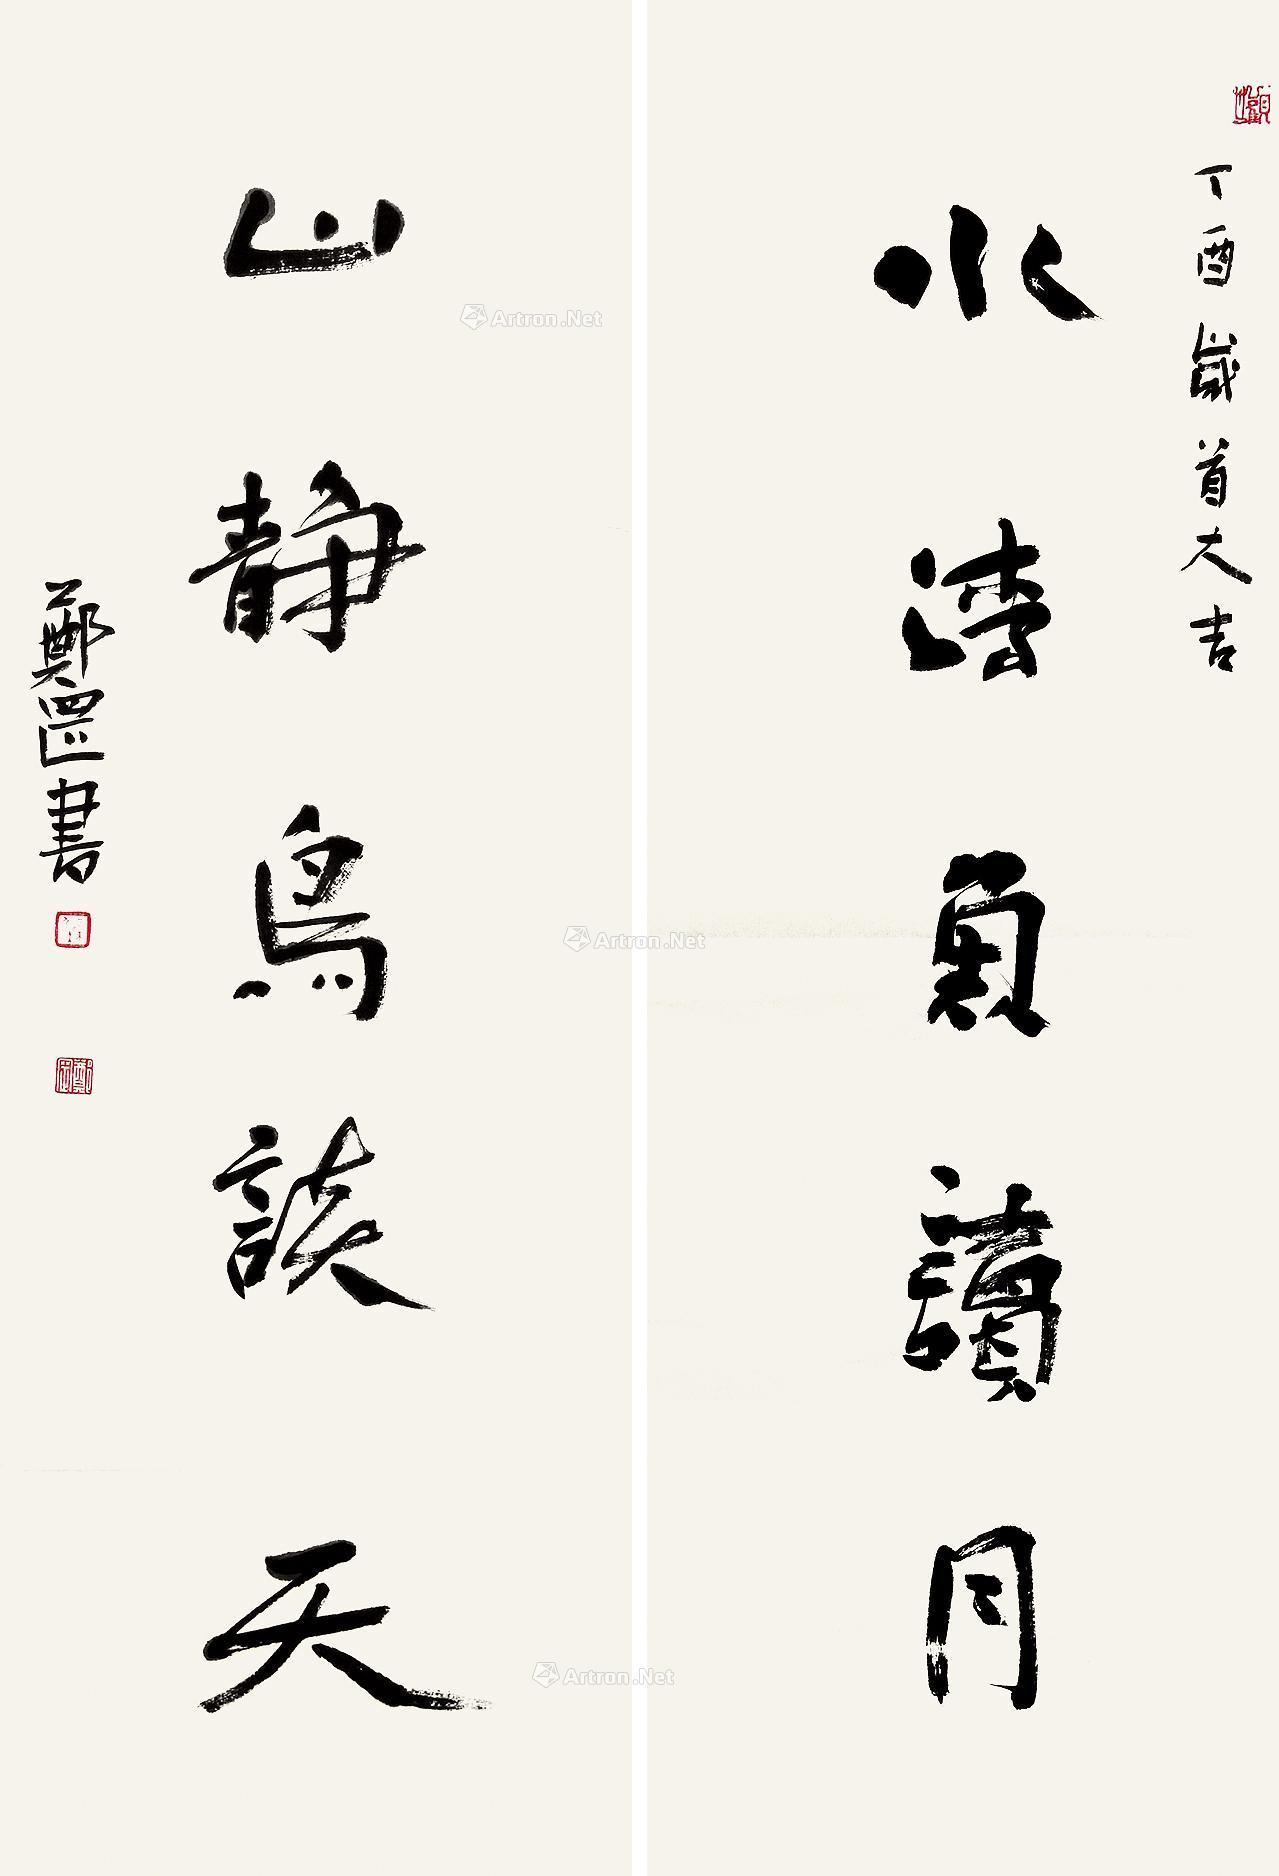 丁酉歲首大吉
水清魚讀月
山静鳥談天
鄭書
Artron.Net
Artron.Net
Artron.Net